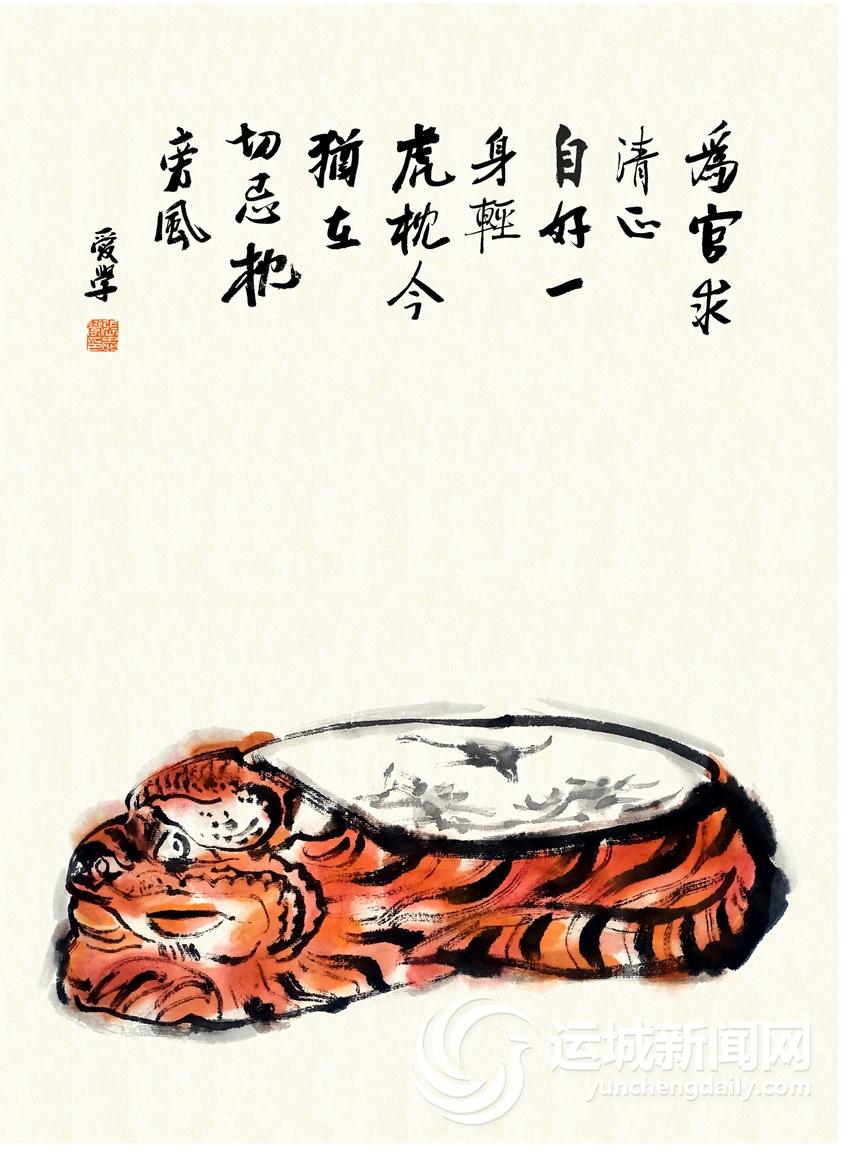 為官求
清正
自好一
身輕
虎枕今
猶在
切忌枕
旁風
愛學
运城新闻网
yunchengdaily.com